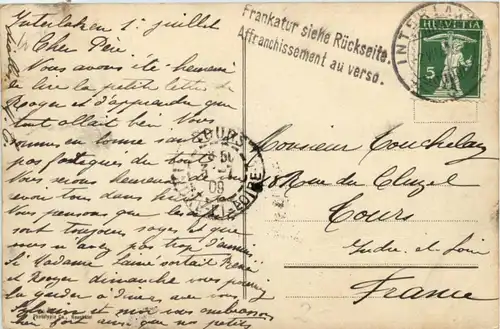 Interlaken 1. juillet
Cher Père
Nous avons été heureux
de lire la petite lettre de
Roger et d'apprendre que
tout allait bien. Nous
sommes en bonne santé
pas fatigués du tout
Nous serons heureux de
avoir tous dans
Nous pensons que les
sont toujours sages et que
vous n'avez pas trop d'ennuis.
Si Madame sortait René
et Roger dimanche vous pouvez
la garder à dîner avec vous
et moi vous embrassons
bien fort ainsi que nos petits
Frankatur siehe Rückseite.
Affranchissement au verso.
HELVETIA
5
TOURS
09
Monsieur Touchelay
18 Rue du Cluzel
Tours
Indre et Loire
France